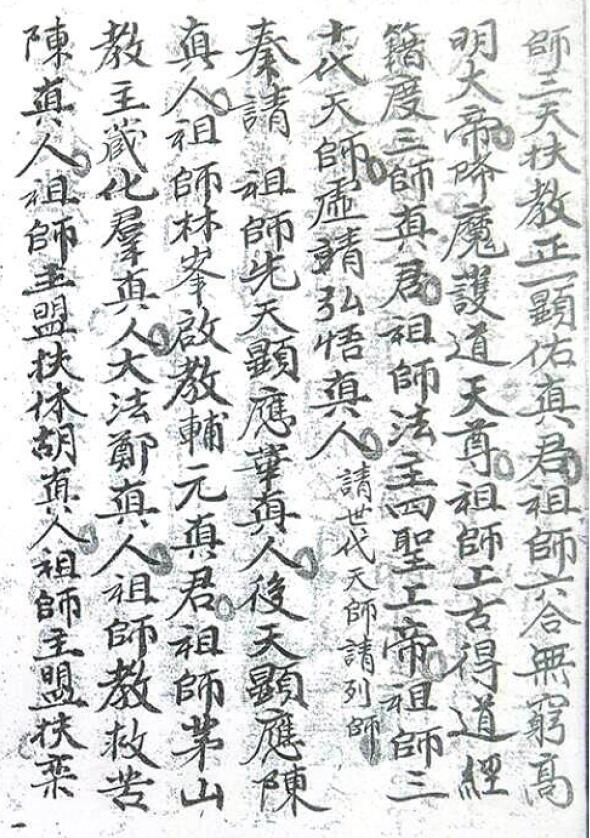 師三天扶教正一顯佑真君祖師六合無窮高
明大帝降魔護道天尊祖師上古得道經
籍度三師真君祖師法主四聖上帝祖師三
十代天師虛靖弘悟真人 請世代天師請列師
秦請 祖師先天顯應華真人後天顯應陳
真人祖師林峯啟教輔元真君祖師茅山
教主葳化羣真人大法鄭真人祖師教救苦
陳真人祖師主盟扶休胡真人祖師主盟扶栾